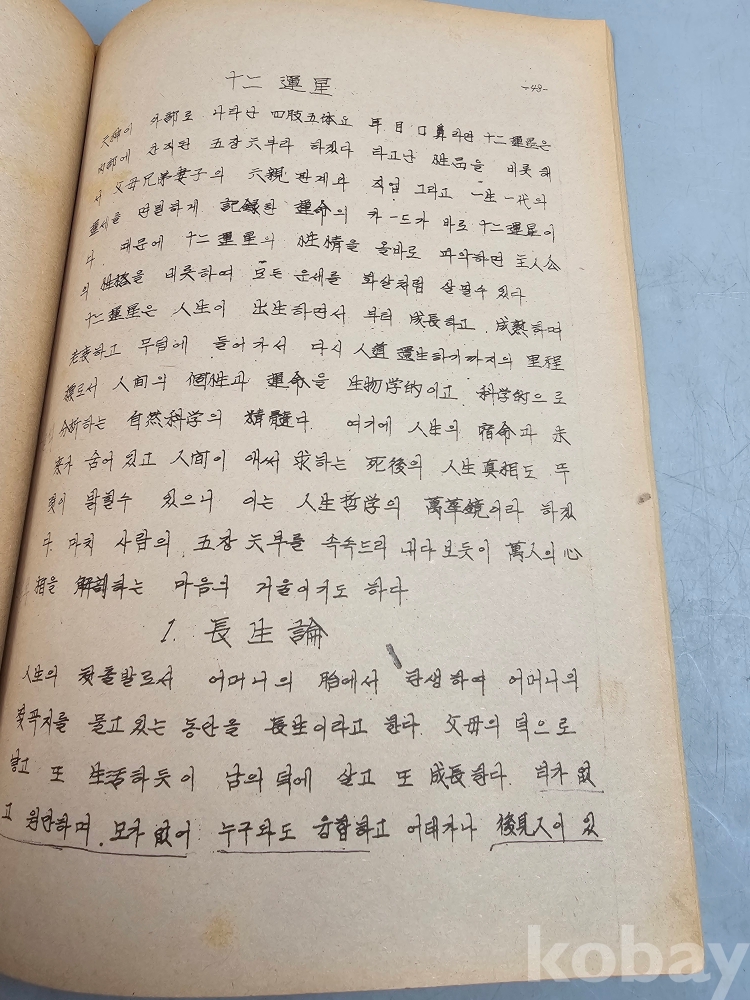 十二 運星
-48-
六神이 外部로 나타난 四肢五体요 耳目口鼻라면 十二運星은
内部에 간직된 五장六부라 하겠다 타고난 性品을 비롯해
서 父母兄弟妻子의 六親관계와 직업 그리고 一生一代의
운세를 면밀하게 記録한 運命의 카ー드가 바로 十二運星이
다. 때문에 十二運星의 性情을 올바로 파악하면 主人公
의 性格을 비롯하여 모든 운세를 화살처럼 살필수 있다
十二運星은 人生이 出生하면서 부터 成長하고 成熟하며
老衰하고 무덤에 들어가서 다시 人道還生하기까지의 里程
標로서 人間의 個性과 運命을 生物学的이고 科学的으로
分析하는 自然科学의 精髓다. 여기에 人生의 宿命과 未
來가 숨어 있고 人間이 애써 求하는 死後의 人生真相도 뚜
렷이 밝힐수 있으니 이는 人生哲学의 萬華鏡이라 하겠
다. 마치 사람의 五장六부를 속속드리 내다보듯이 萬人의 心
相을 解剖하는 마음의 거울이기도 하다
1. 長生論
人生의 첫출발로서 어머니의 胎에서 탄생하여 어머니의
젖꼭지를 물고 있는 동안을 長生이라고 한다. 父母의 덕으로
낳고 또 生活하듯이 남의 덕에 살고 또 成長한다. 티가 없
고 원만하며. 모가 없어 누구와도 융합하고 어데가나 後見人이 있
kobay